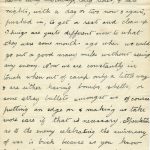 nights, with a day or two now & again,
pushed in, to get a rest and clean up
Things are quite different now to what
they were some month ago when we could
go out a good many miles without seeing
any enemy. Now we are constantly in
touch when out of camp only a little way
& are either having bombs, shells or
some stray bullets
putting us about, & making us take
more care if that is necessary. Apparently
as the enemy celebrating the anniversary
of war is back because as you know